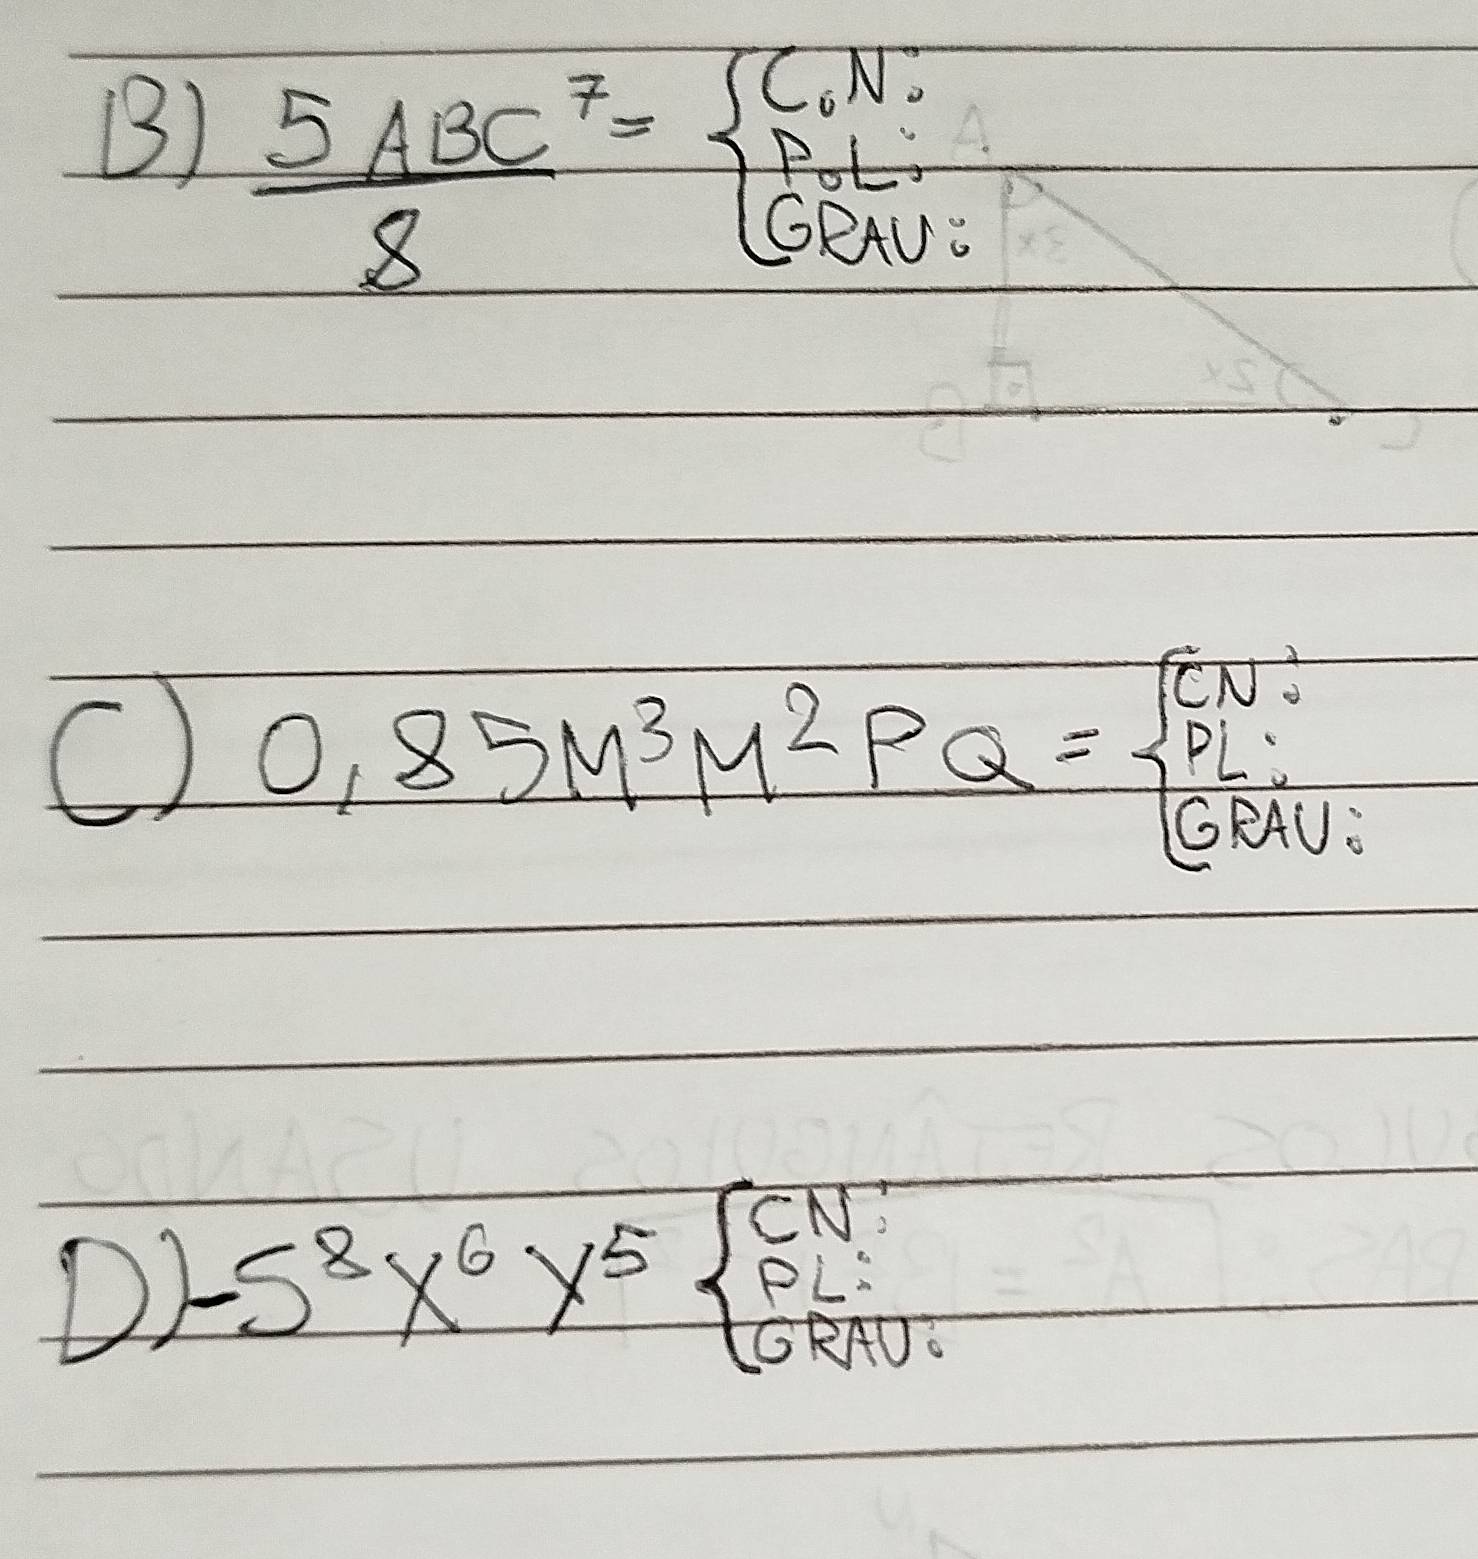 B) 5ABC⁷ = { C.N:
P.L:
8
GRAU:
C) 0,85M³M²PQ = { CN:
PL:
GRAU:
D) -5⁸X⁶Y⁵ { CN:
PL:
GRAU: